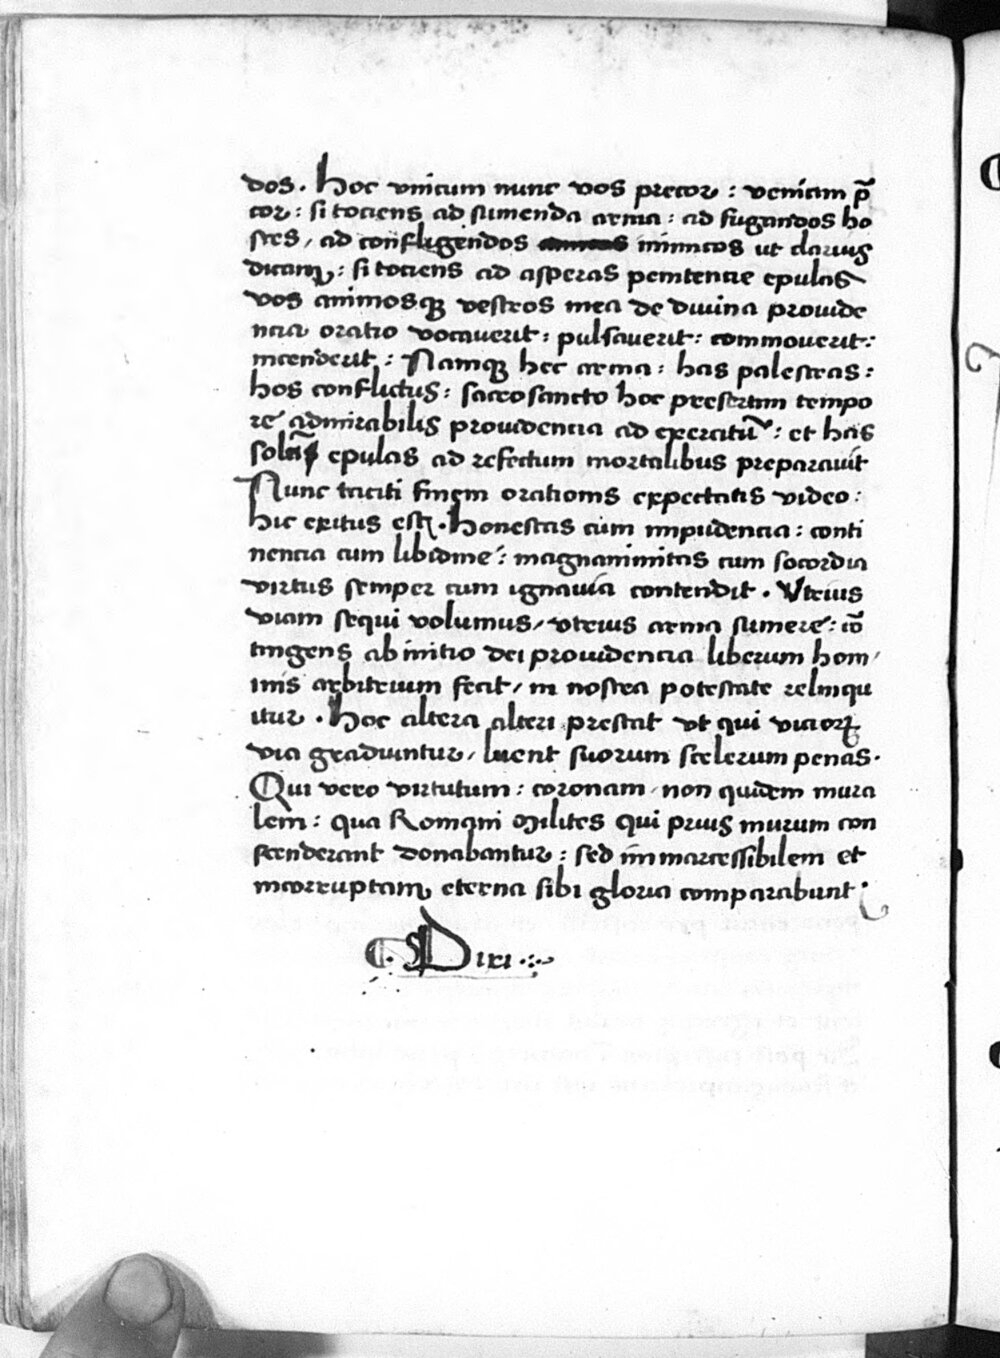 dos. Hoc vnicum nunc vos precor: veniam p̄
cor: si tociens ad sumenda arma: ad fugandos ho
stes, ad confligendos inimicos ut clarius
dicam: si tociens ad asperas penitencie epulas
vos animosqꝫ vestros mea de diuina prouide
ncia oratio vocauerit: pulsauerit: commouerit:
incenderit: Namqꝫ hec arma: has palestras:
hos conflictus: sacrosancto hoc presertim tempo
re admirabilis prouidencia ad exercitiū: et has
epulas ad refectum mortalibus preparauit
Nunc taciti finem orationis expectatis video:
hic exitus est. Honestas cum impudencia: conti
nencia cum libidine: magnanimitas cum socordia
virtus semper cum ignauia contendit. Vtrius
viam sequi volumus, vtrius arma sumere: cō
tingens ab initio dei prouidencia liberum hom,
inis arbitrium fecit, in nostra potestate relinqu
itur. Hoc altera alteri prestat vt qui vicioꝝ
via gradiuntur, luent suorum scelerum penas.
Qui vero virtutum: coronam, non quidem mura
lem: qua Romani milites qui prius murum con
scenderant donabantur: sed immarcessibilem et
incorruptam eterna sibi gloria comparabunt:
Dixi.